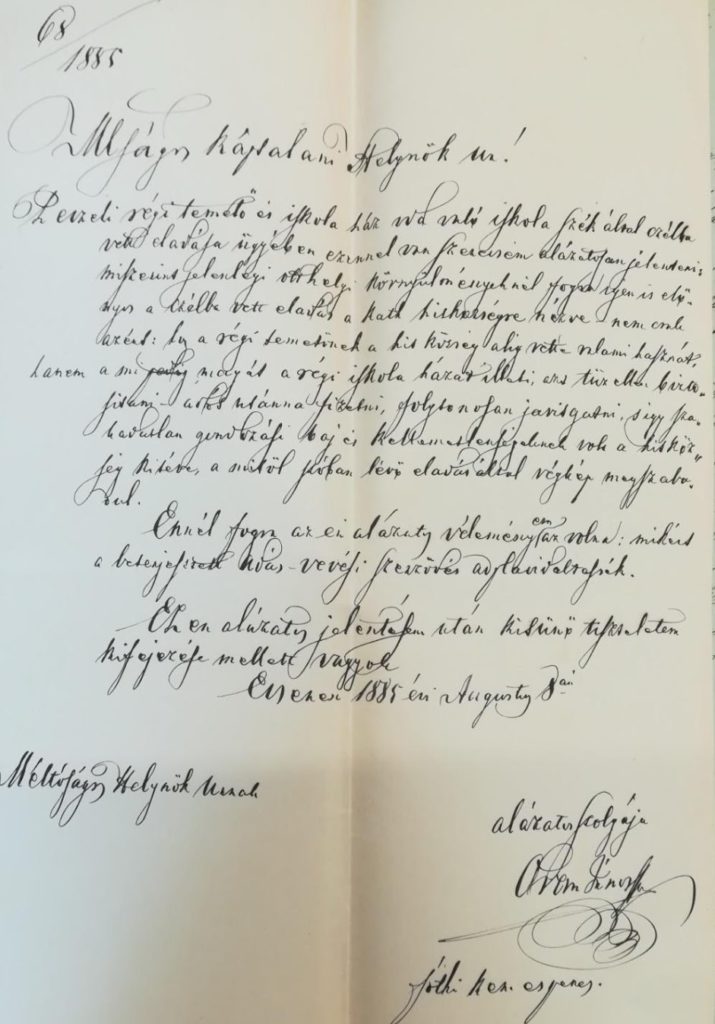 68
1885
Mlságos Káptalani Helynök ur!
Peszéki régi temető és iskola ház oda való iskola szék által czélba
vett eladása ügyében ezennel van szerencsém alázatosan jelenteni:
miszerint jelenlegi ott helyi környülményeknél fogva igen is elő-
nyös a czélba vett eladás a kath hitközségre nézve – nem csak
azért: hogy a régi temetőnek a hitközség alig vette valami hasznát,
hanem a mi magát a régi iskola házát illeti, azt tűz ellen bizto-
sitani – adót utánna fizetni, folytonosan javitgatni, s igy sza-
kadatlan gondozási baj és kellemetlenségeknek volt a hitköz-
ség kitéve, a mitöl szóban lévő eladás által végkép megszaba-
dul.
Ennél fogva az én alázatos véleményem az volna: miként
a beterjesztett adás-vevési szerződés
Ezen alázatos jelentésem után kitünő tiszteletem
kifejezése mellett vagyok
1885 évi Augustus 8án
Méltóságos Helynök Urnak
alázatos szolgája
János
fóthi ker. esperes.